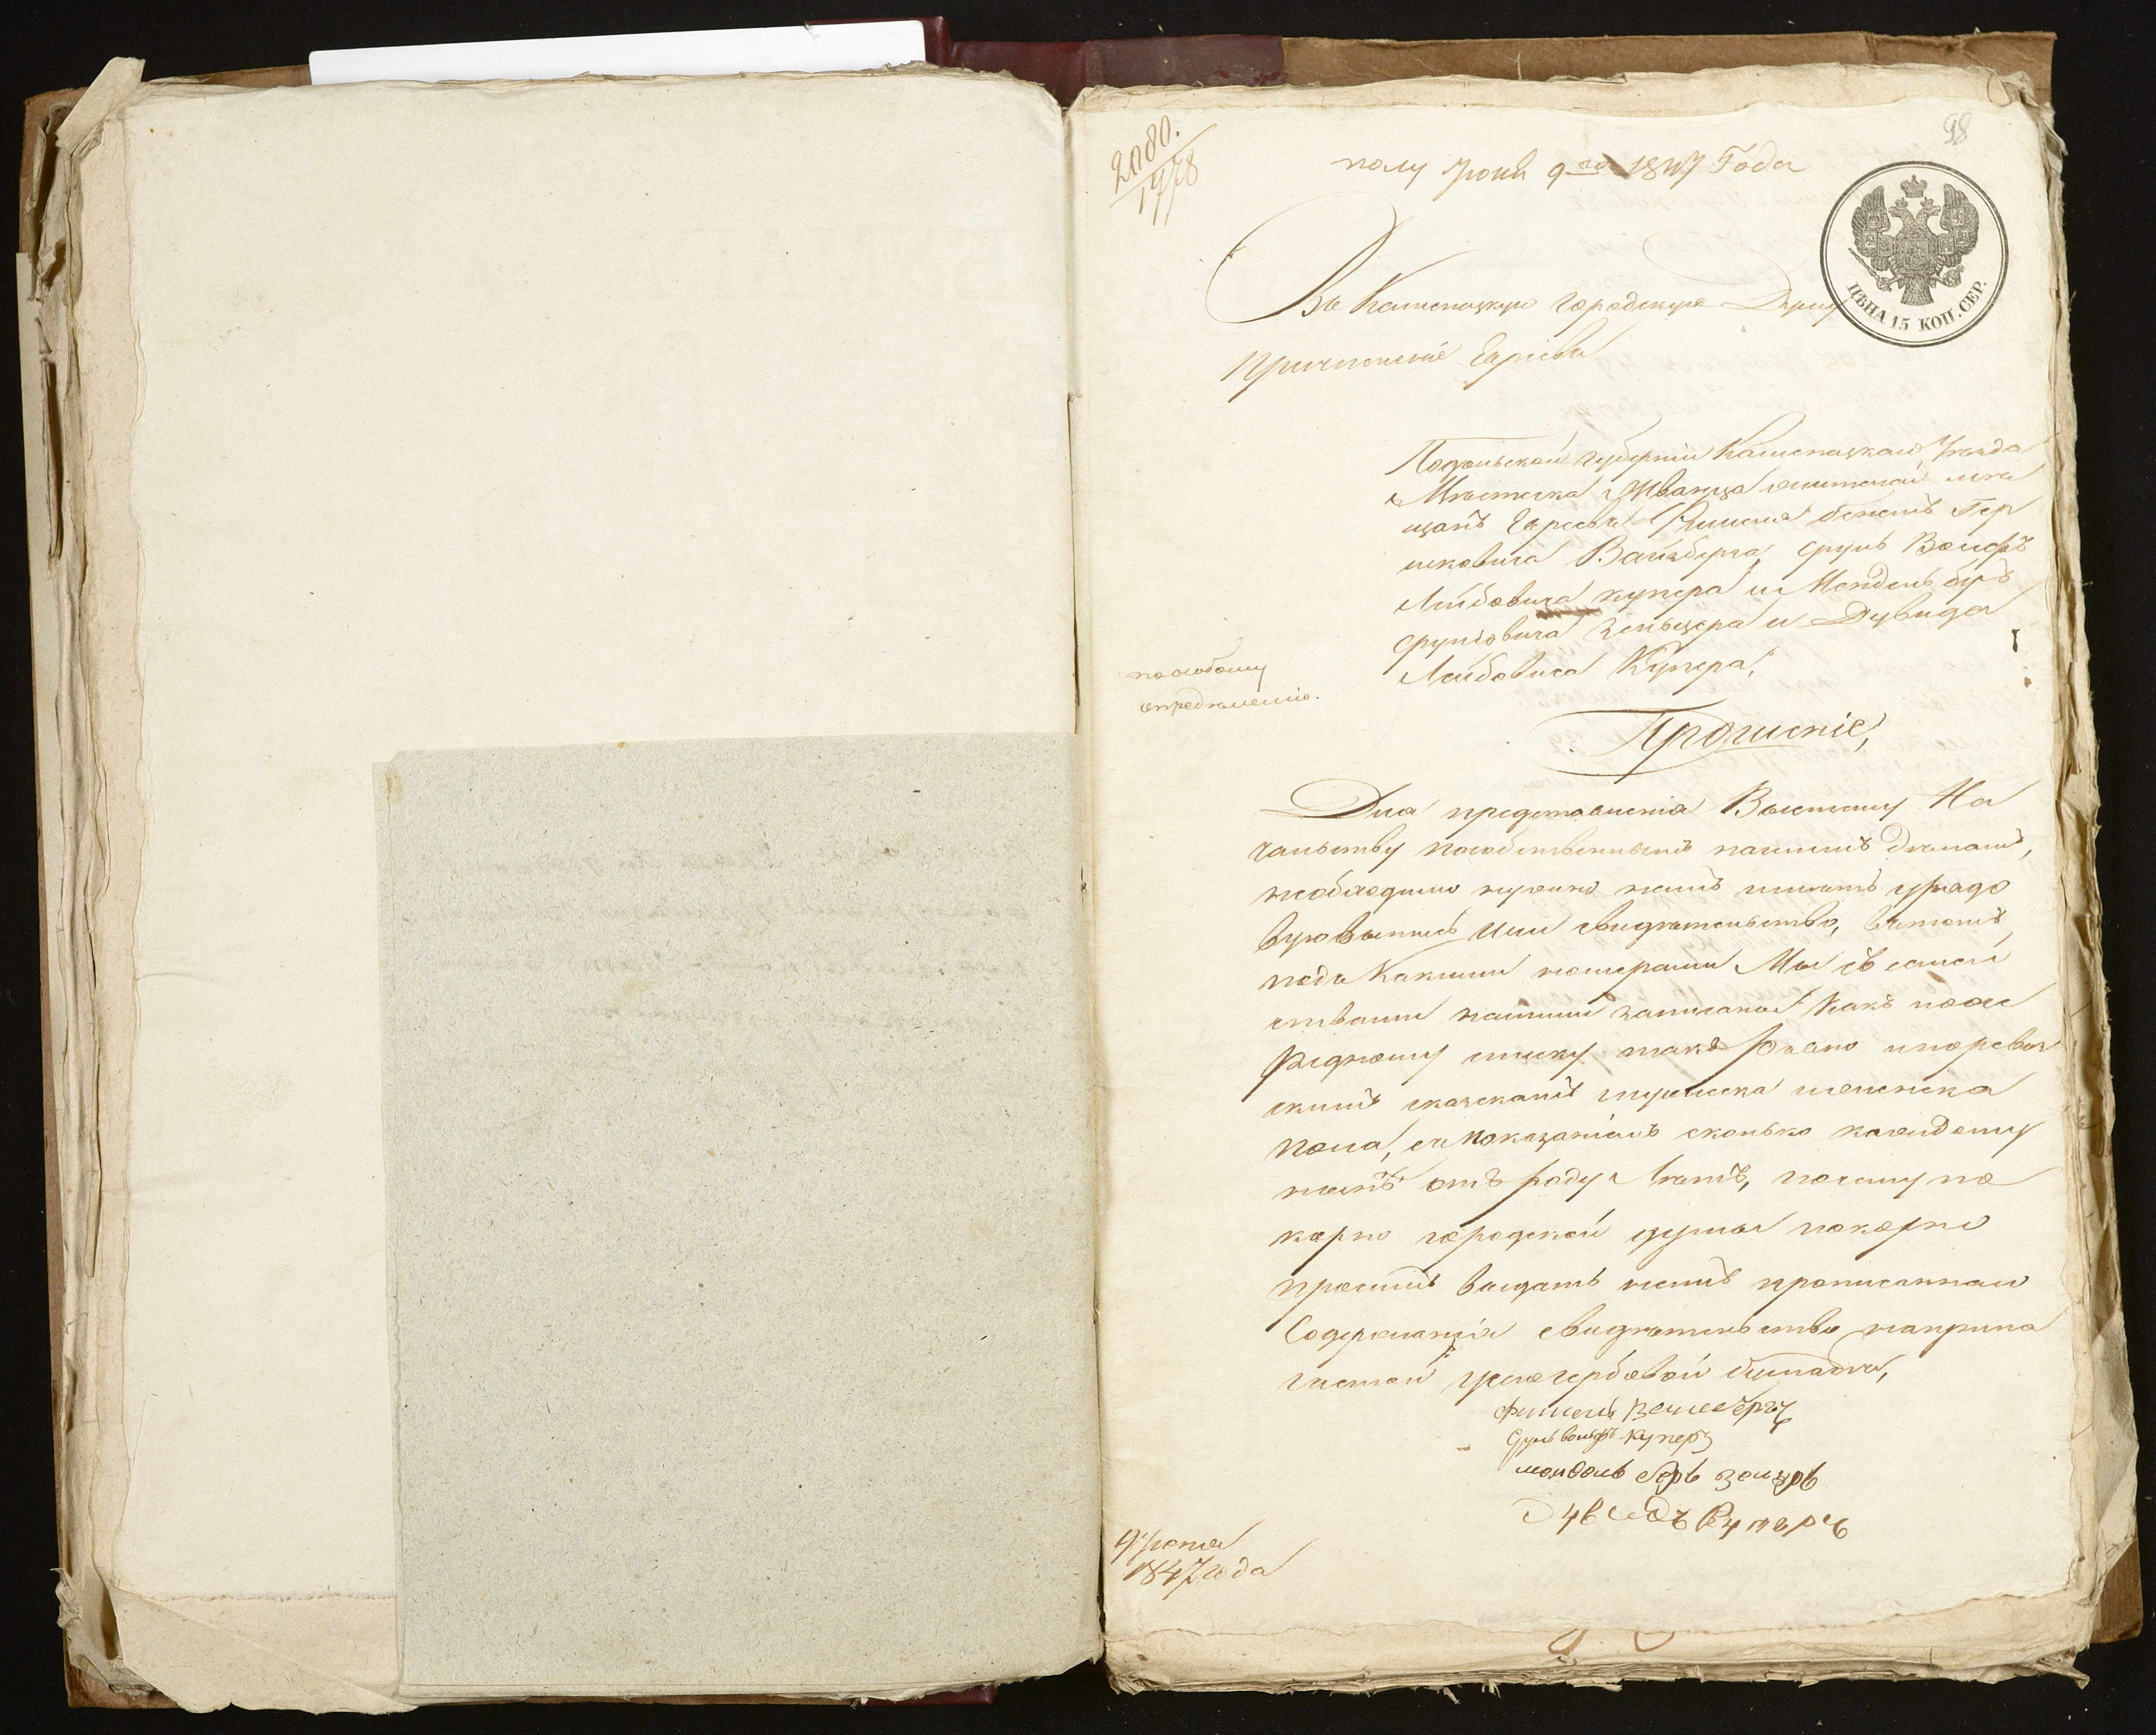 98
2080.
1978
полу Июня 9го 1847 Года
ЦѢНА 15 КОП. СЕР.
Въ Каменецкую городскую Думу
Причисленіе Евреевъ
Подольской губерніи Каменецкаго Уѣзда
Мѣстечка Жванца жителей мѣ
щанъ Евреевъ Фишеля Гер
шковича Вайзберга, Сруль Вольфъ
Лейбовича купера и Мендель беръ
Срулѣовича Зельцера и Дувида
Лейбовича Купера,
по особому
опредѣленію.
Прошеніе,
Для представленія Высшему На
чальству по собственнымъ нашимъ Дѣламъ,
необходимо нужно намъ имѣть урядо
вую выпись или свидѣтельство, въ томъ
подъ Какими номерами Мы съ семей
ствами нашими записаны Какъ по оче
редному списку такъ равно и по ревиз
скимъ сказкамъ мужеска и женска
пола, съ показаніемъ сколько каждому
намъ отъ роду Лѣтъ, почему по
корно городской думы покорно
просимъ выдать намъ прописаннаго
Содержанія свидѣтельство на прила
гаемой у сего гербовой бумагѣ,
Фишель Вейсбергъ
Сруль вольфъ куперъ
мендель беръ зельцеръ
Дувидъ Куперъ
9 Июня
1847 года